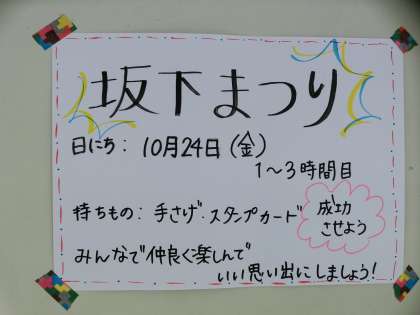 坂下まつり
日にち：10月24日（金）
1～3時間目
持ちもの：手さげ・スタンプカード
成功
させよう
みんなで仲良く楽しんで
いい思い出にしましょう！